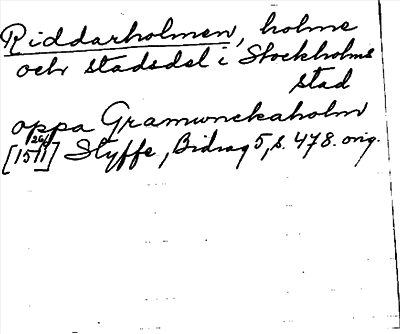 Riddarholmen, holme
och stadsdel i Stockholms
stad
oppa Gramunckaholm
[1511] Styffe, Bidrag 5, s. 478. orig.